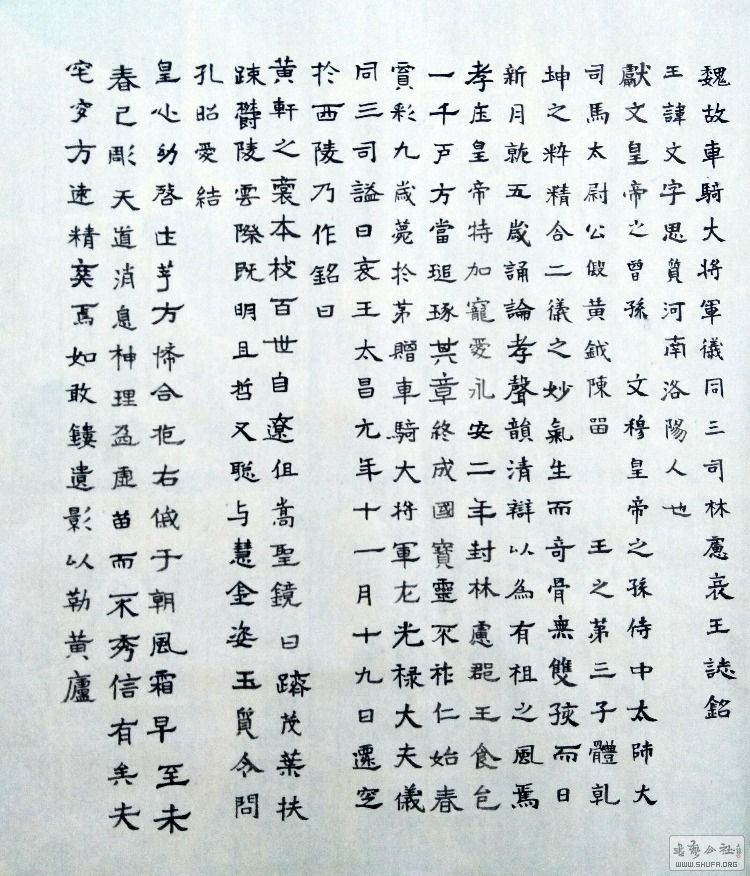 魏故車騎大将軍儀同三司林慮哀王誌銘
王諱文字思質河南洛陽人也
獻文皇帝之曾孫 文穆皇帝之孫侍中太師大
司馬太尉公假黃鉞陳留 王之第三子體乹
坤之粹精合二儀之妙氣生而奇骨無雙孩而日
新月就五歲誦論孝聲韻清辯以為有祖之風焉
孝庄皇帝特加寵愛永安二年封林慮郡王食邑
一千戸方當琨琢其章終成國寶靈不祚仁始春
賣彩九歲薨於茅贈車騎大将軍左光禄大夫儀
同三司謚曰哀王太昌元年十一月十九日遷空
於西陵乃作銘曰
黃軒之裔本枝百世自遼伹嵩聖鏡曰躋茂葉扶
踈欝陵雲際既明且哲又聡与慧金姿玉質令問
孔昭愛結
皇心幼啓土茅方悕合拖右戚于朝風霜早至未
春已彫天道消息神理盈虛苗而不秀信有矣夫
宅穸方速精爽焉如敢鏤遺影以勒黃廬
WWW.SHUFA.ORG